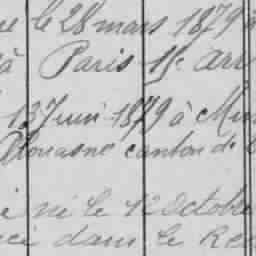 le 28 mars 1879 à
à Paris 15e arr
13 Juin 1879 à
Plouasne canton de
né le 12 Octobre
dans le